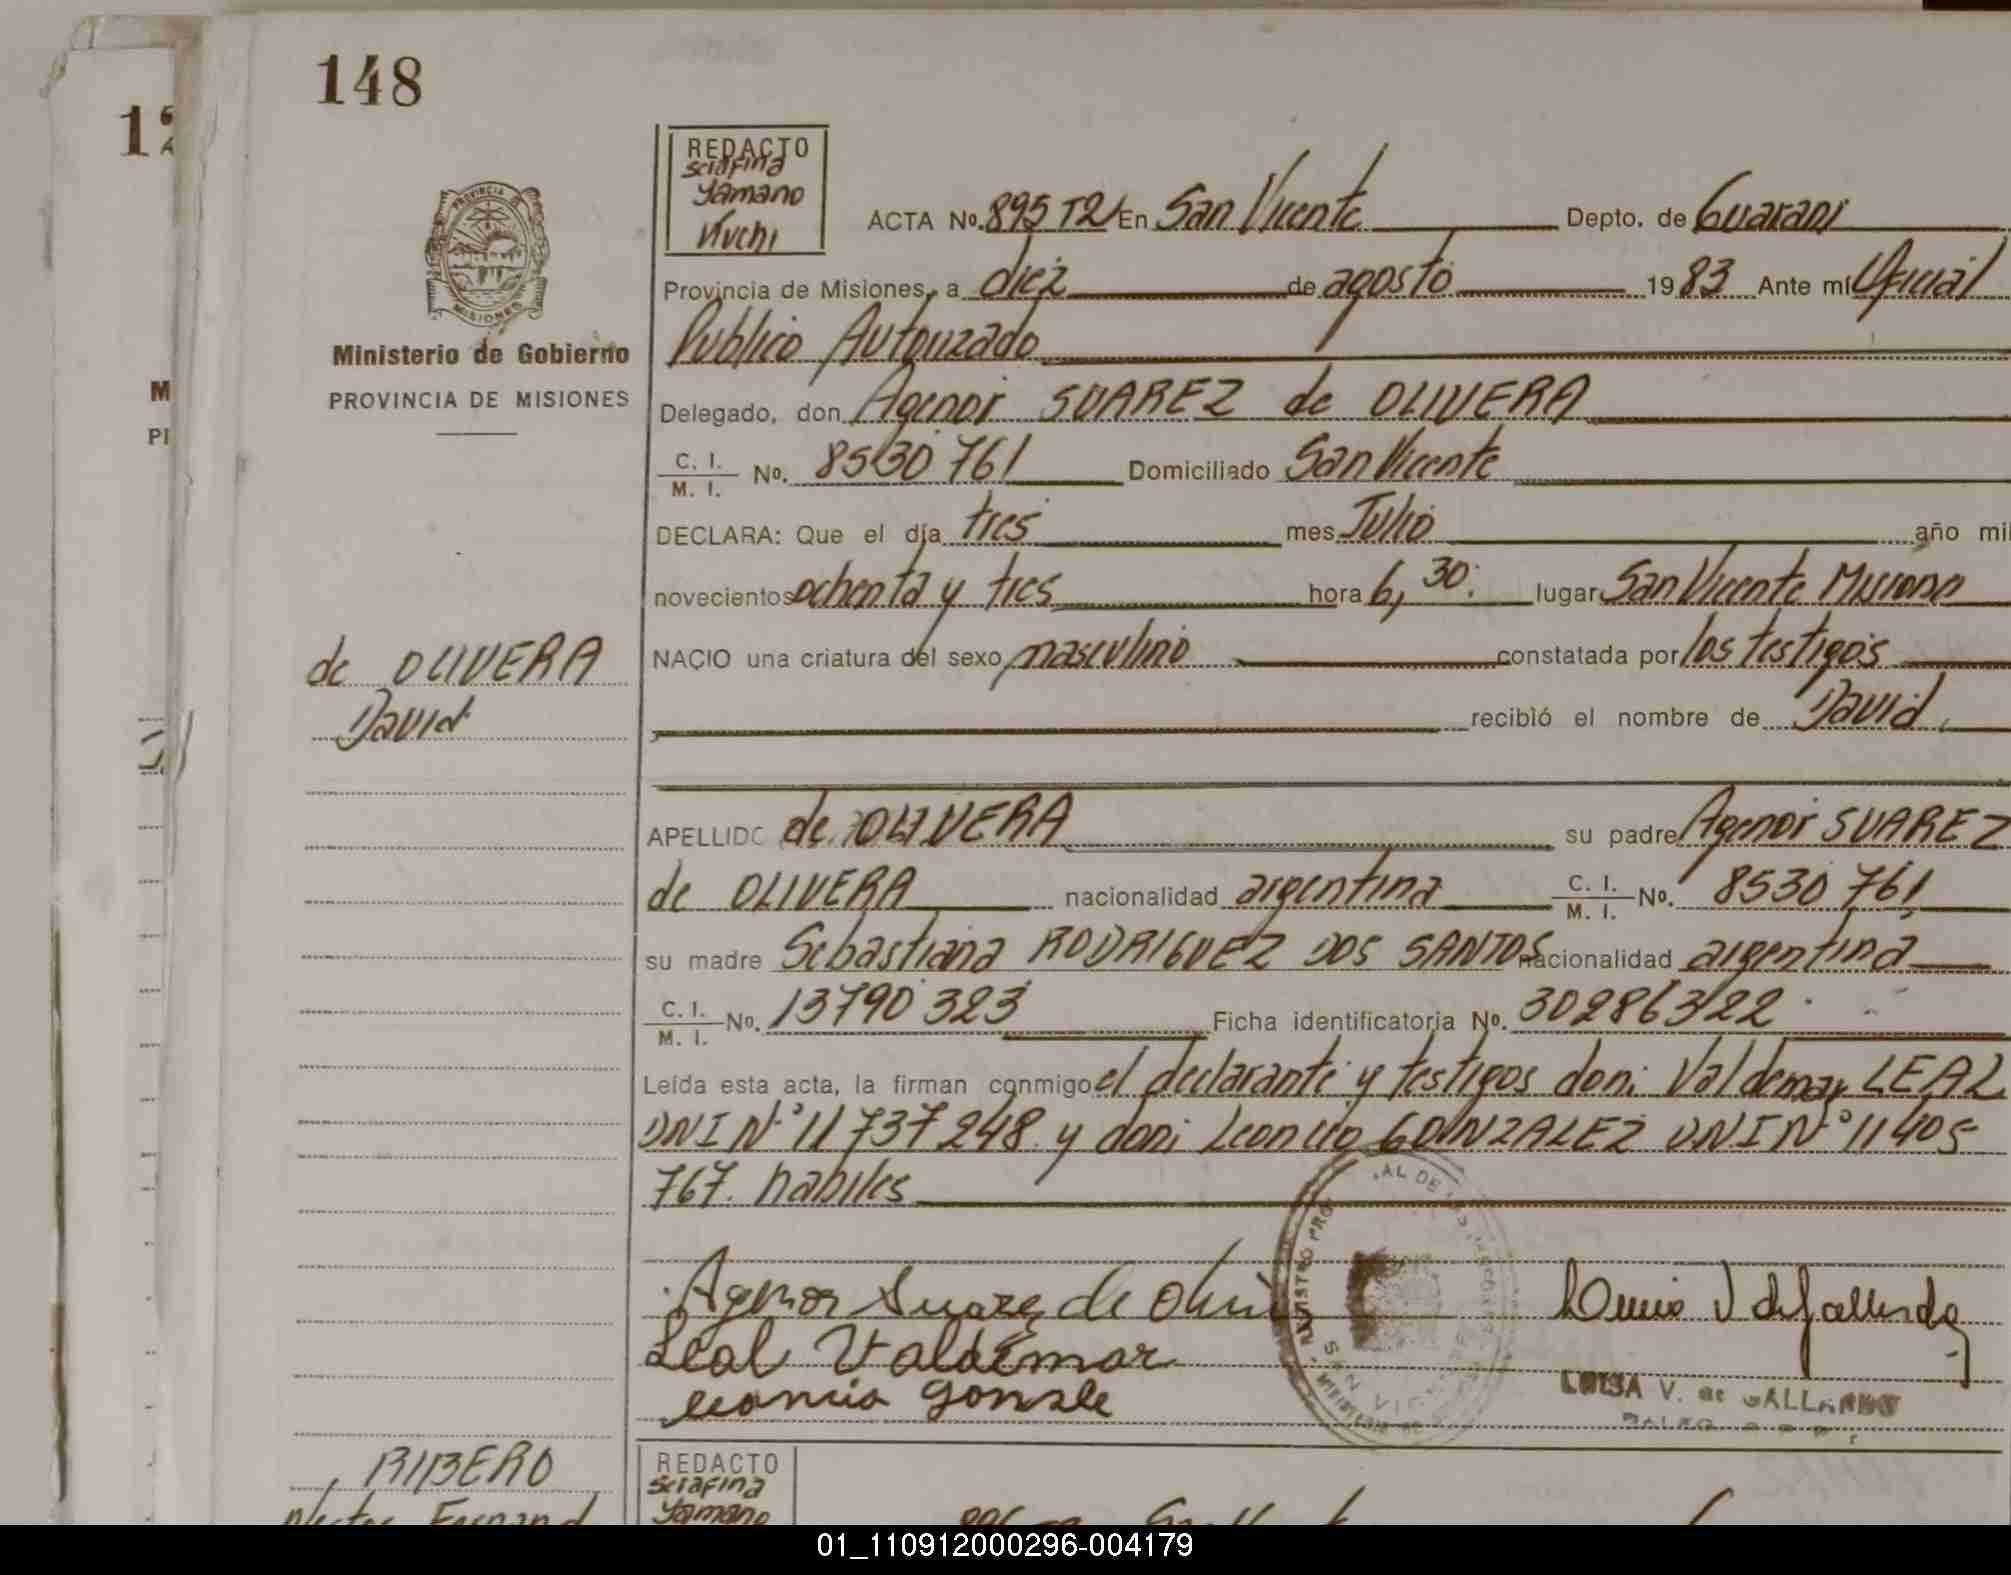 148
12
REDACTO
Serafina
Yamano
Viuchi
PROVINCIA
MISIONES
Ministerio de Gobierno
PROVINCIA DE MISIONES
M
PI
ACTA No. 895 T2 En San Vicente Depto. de Guarani
Provincia de Misiones, a diez de agosto 1983 Ante mí Oficial
Publico Autorizado
Delegado, don Agenor SUAREZ de OLIVERA
C. I. / M. I. No. 8530761 Domiciliado San Vicente
DECLARA: Que el día tres mes Julio año mil
novecientos ochenta y tres hora 6,30: lugar San Vicente Misiones
de OLIVERA
David
NACIO una criatura del sexo masculino constatada por los testigos
recibió el nombre de David,
APELLIDO de OLIVERA su padre Agenor SUAREZ
de OLIVERA nacionalidad argentina C. I. / M. I. No. 8530761
su madre Sebastiana RODRIGUEZ DOS SANTOS nacionalidad argentina
C. I. / M. I. No. 13790323 Ficha identificatoria No. 30286322
Leída esta acta, la firman conmigo el declarante y testigos don: Valdemar LEAL
DNI Nº 11737248 y don: Leoncio GONZALEZ DNI Nº 11405
767. habiles
Agenor Suarez de Oliv
Leal Valdemar
leoncio gonzale
SAN VICENTE
LUISA V. de GALLARDO
RIBERO
Nestor Fernand
REDACTO
Serafina
Yamano
01_110912000296-004179